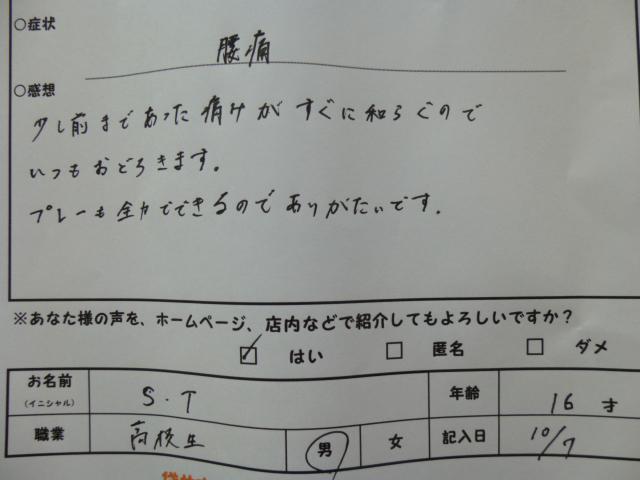 ○症状
腰痛
○感想
少し前まであった痛みがすぐに和らぐので
いつもおどろきます。
プレーも全力でできるのでありがたいです。
※あなた様の声を、ホームページ、店内などで紹介してもよろしいですか？
はい 匿名 ダメ
お名前 S.T 年齢 16 才
(イニシャル)
職業 高校生 男 女 記入日 10/7